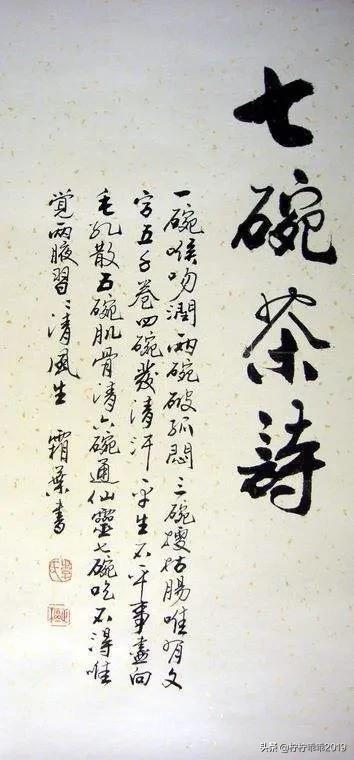 七碗茶詩
一碗喉吻潤兩碗破孤悶三碗搜枯腸唯有文
字五千卷四碗發清汗平生不平事盡向
毛孔散五碗肌骨清六碗通仙靈七碗吃不得唯
覺兩腋習〻清風生 霜葉書
头条 @柠柠乖乖2019